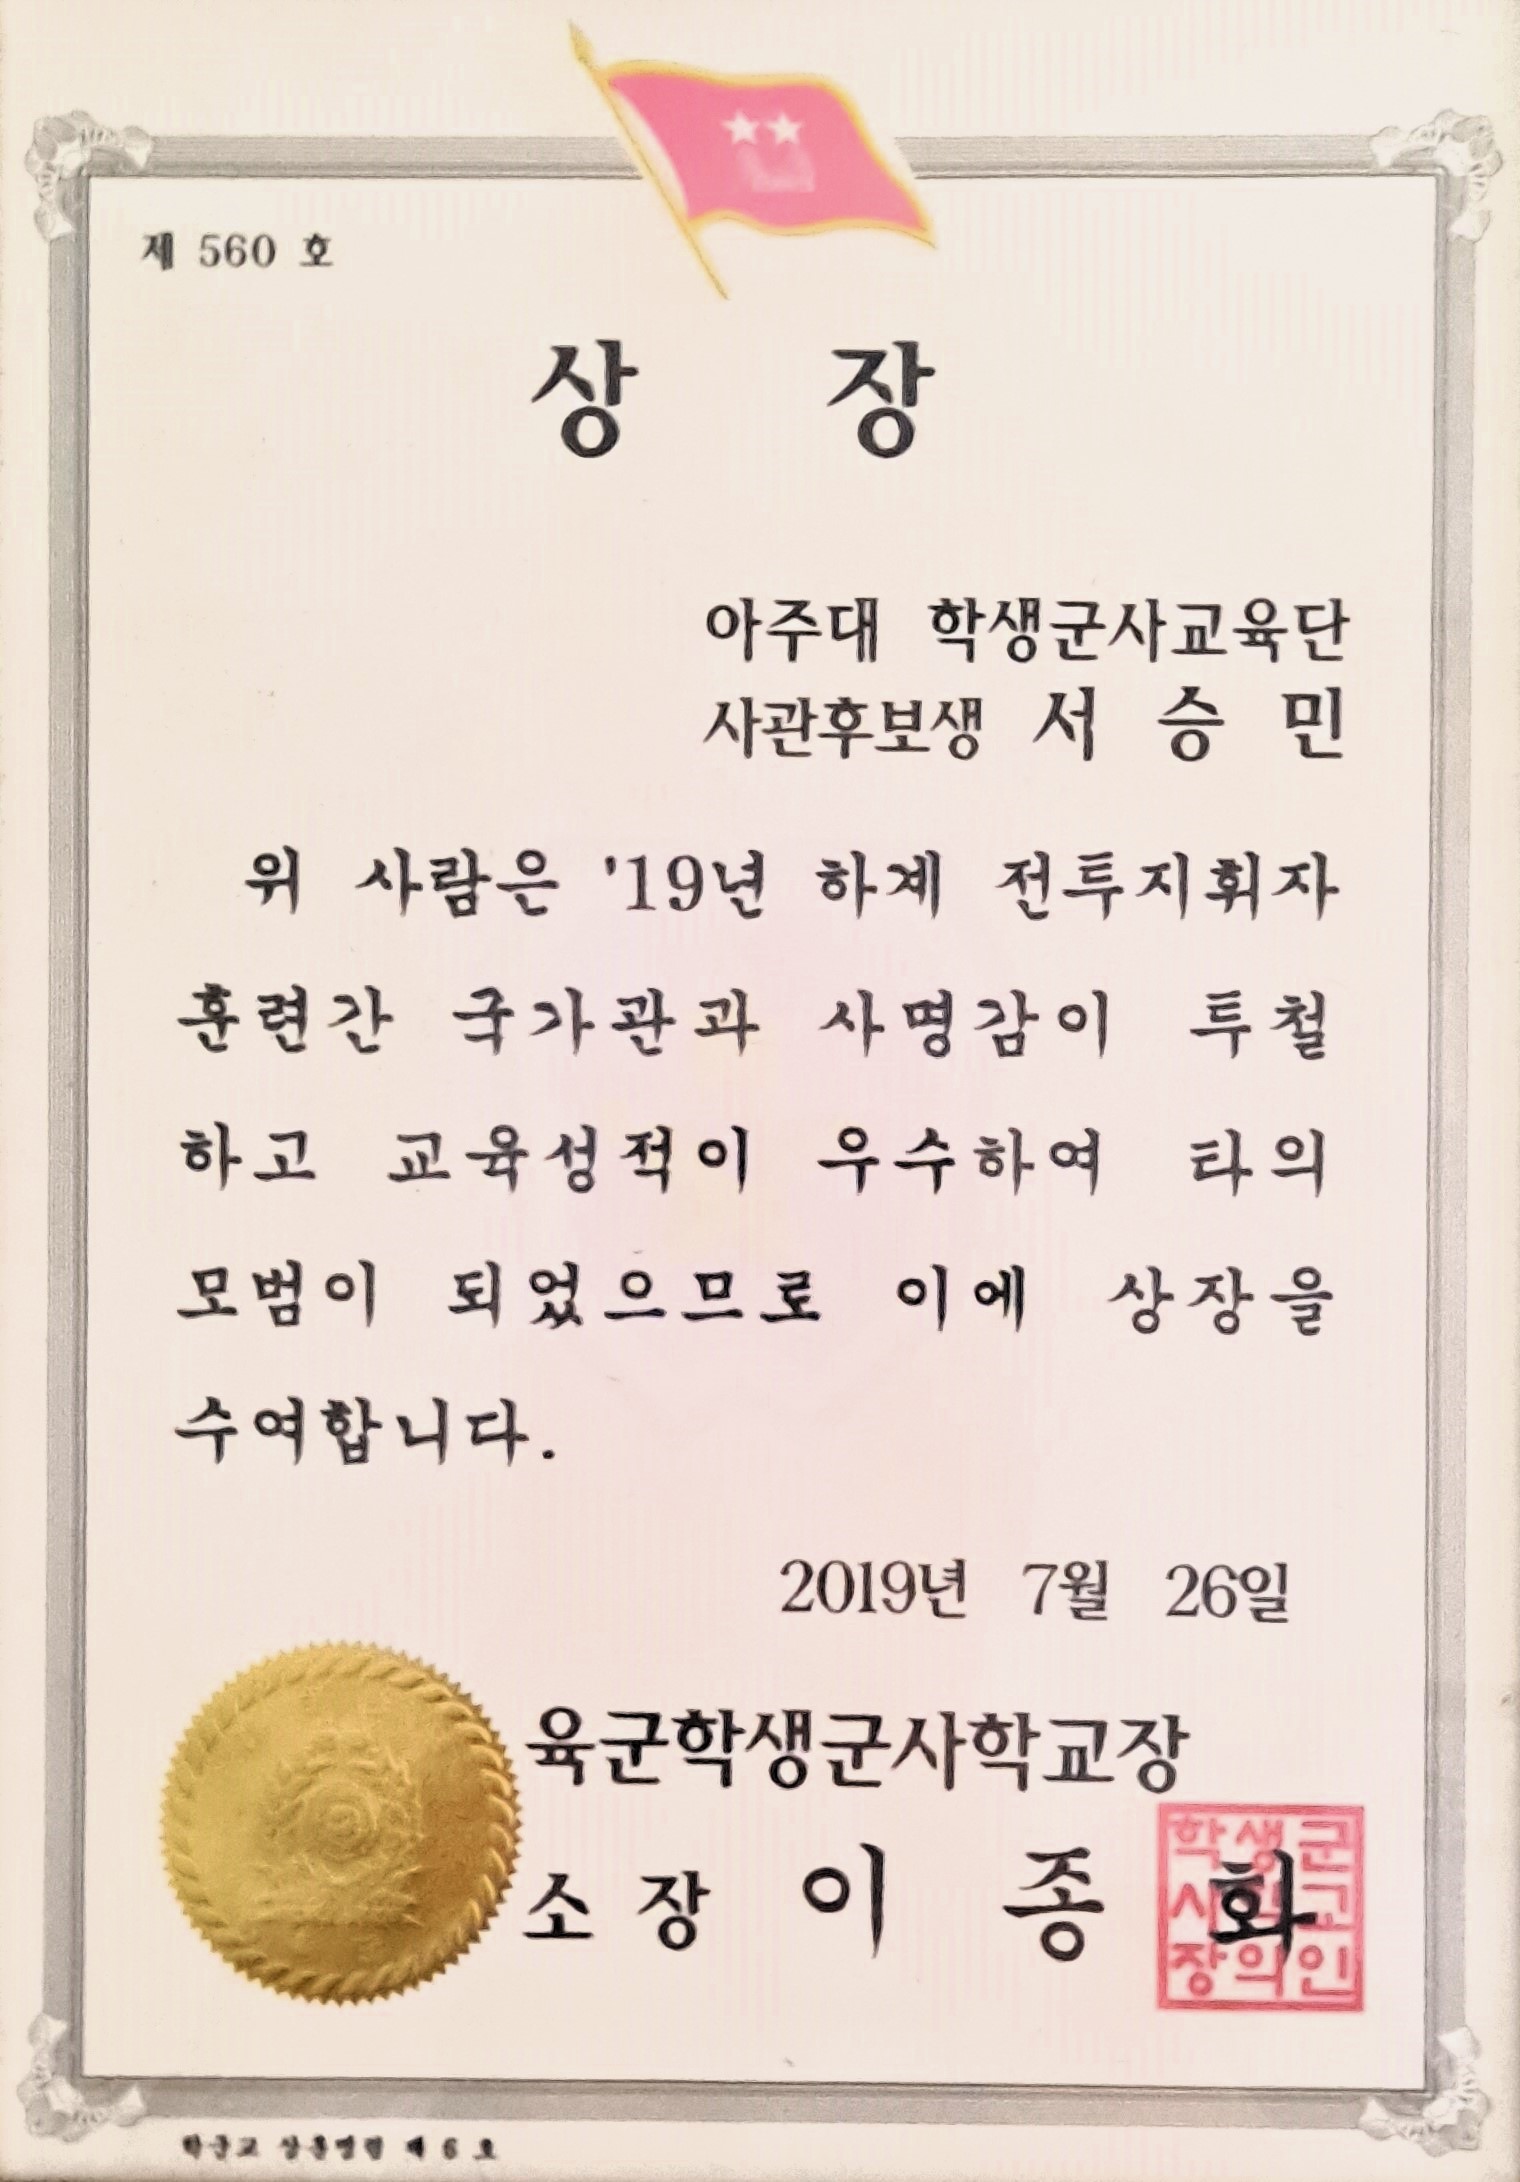 제 560 호
상 장
아주대 학생군사교육단
사관후보생 서 승 민
위 사람은 '19년 하계 전투지휘자
훈련간 국가관과 사명감이 투철
하고 교육성적이 우수하여 타의
모범이 되었으므로 이에 상장을
수여합니다.
2019년 7월 26일
육군학생군사학교장
소 장 이 종 화
학생군
사학교
장의인
학군교 상훈명령 제 6 호